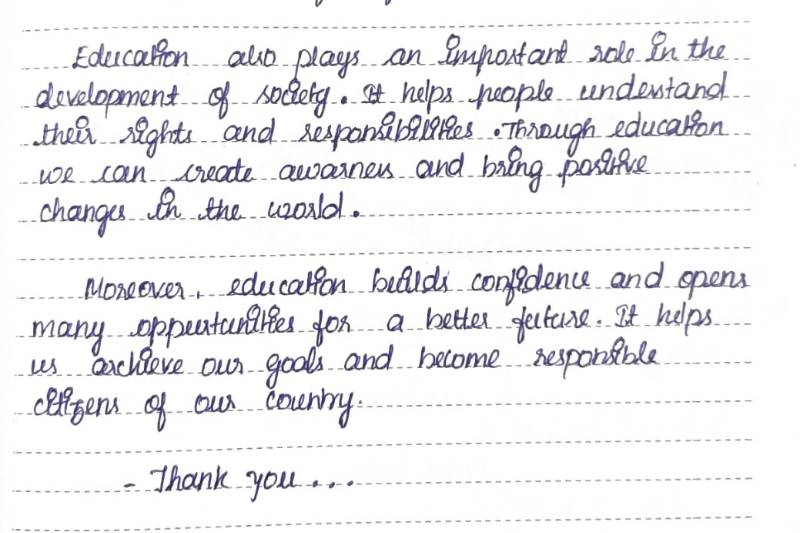 Education also plays an important role in the
development of society. It helps people understand
their rights and responsibilities. Through education
we can create awarness and bring positive
changes in the world.
Moreover, education builds confidence and opens
many oppurtunities for a better future. It helps
us archieve our goals and become responsible
citizens of our country.
- Thank you...